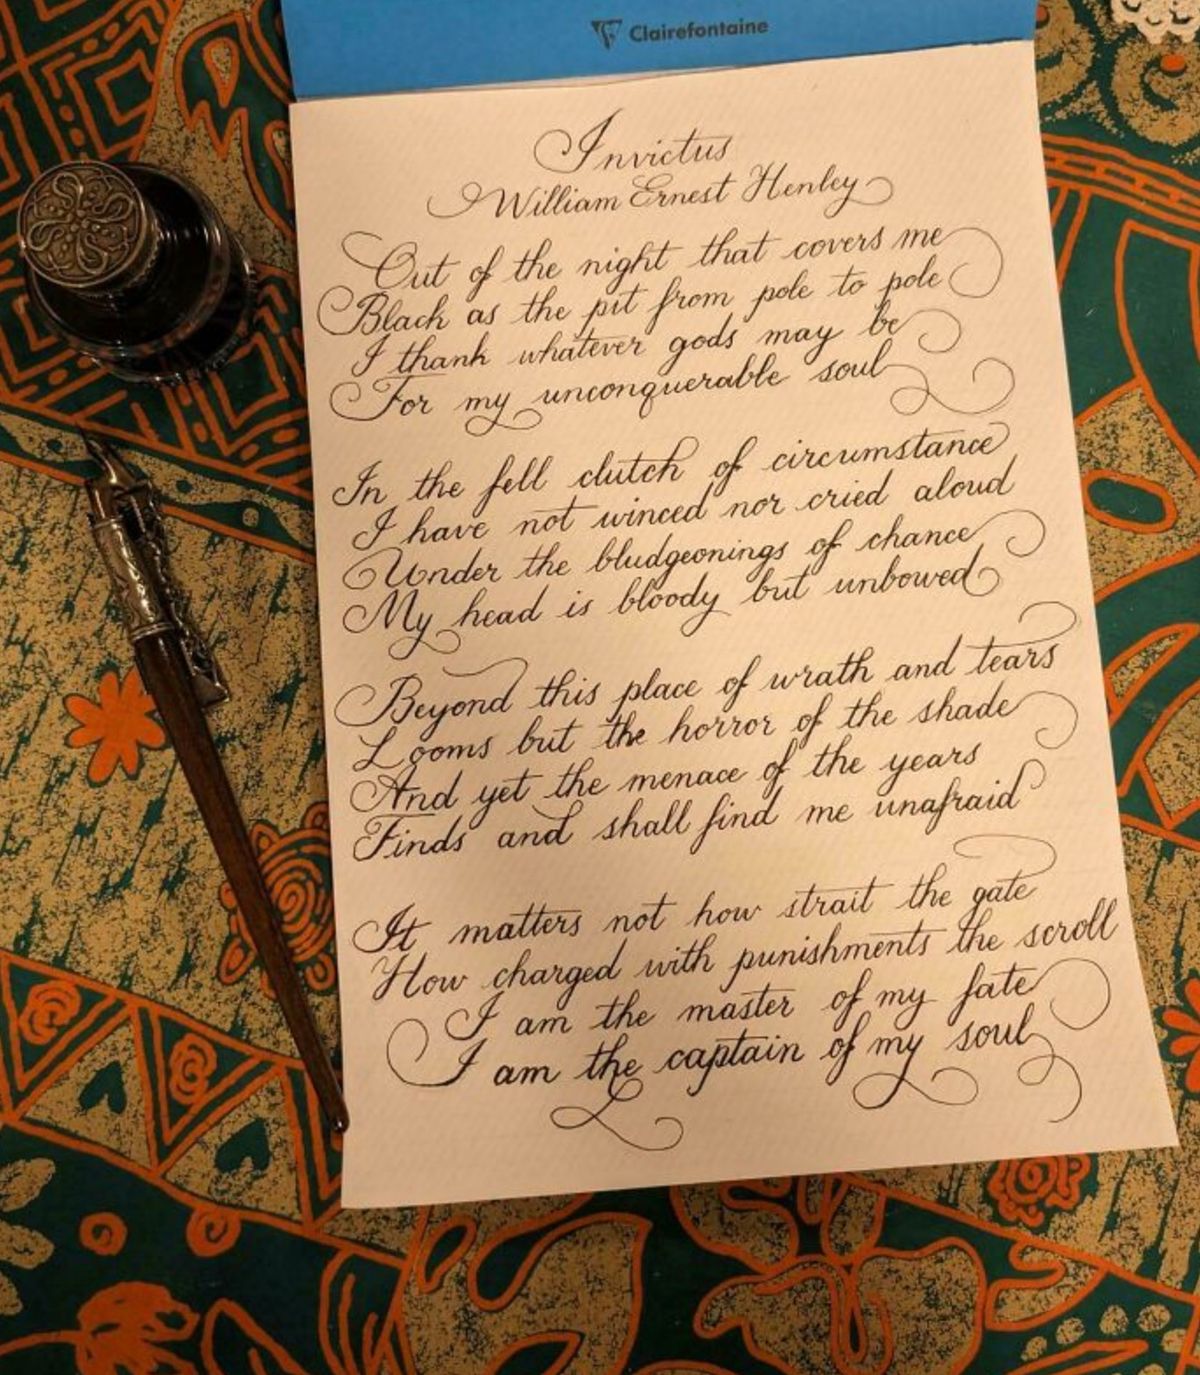 Clairefontaine
Invictus
William Ernest Henley
Out of the night that covers me
Black as the pit from pole to pole
I thank whatever gods may be
For my unconquerable soul
In the fell clutch of circumstance
I have not winced nor cried aloud
Under the bludgeonings of chance
My head is bloody but unbowed
Beyond this place of wrath and tears
Looms but the horror of the shade
And yet the menace of the years
Finds and shall find me unafraid
It matters not how strait the gate
How charged with punishments the scroll
I am the master of my fate
I am the captain of my soul